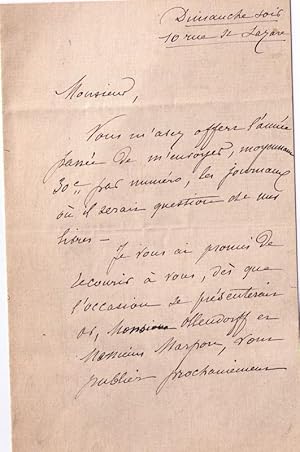 Dimanche soir
10 rue St Lazare
Monsieur,
Vous m'avez offert l'année
passée de m'envoyer, moyennant
30c par numéro, les journaux
où il serait question de mes
livres —
Je vous ai promis de
recourir à vous, dès que
l'occasion se présenterait
or, Monsieur Ollendorff et
Monsieur Marpon, vont
publier prochainement